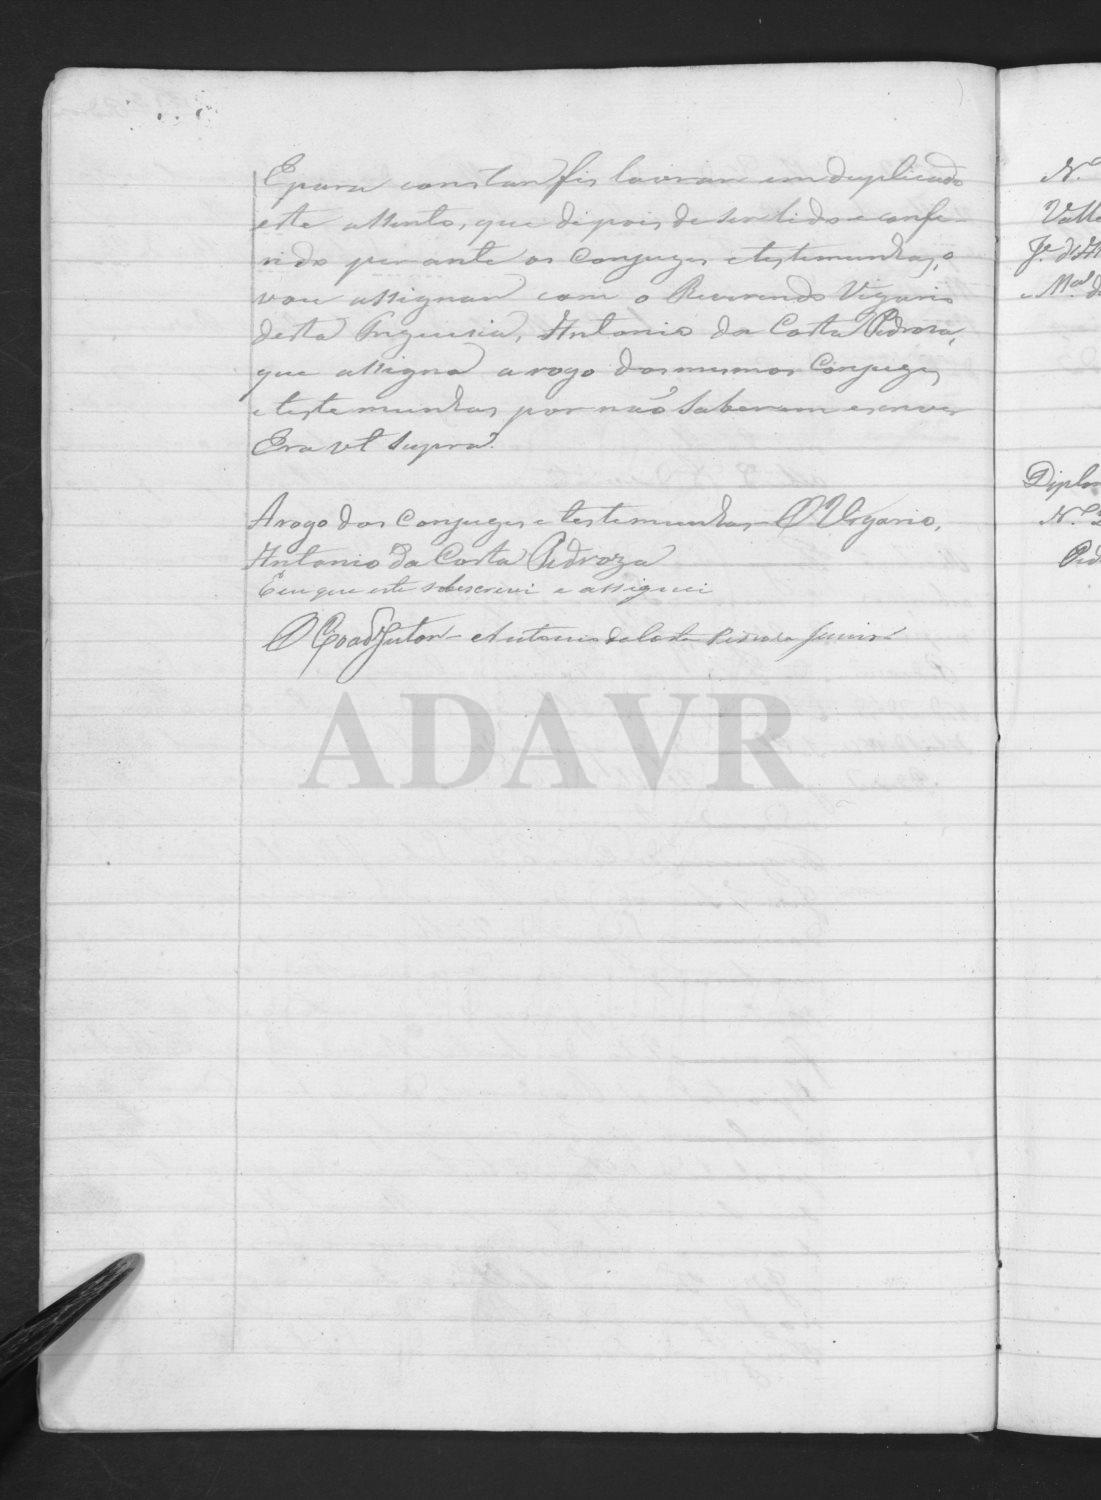 E para constar fis lavrar em duplicado
este assento, que dipois de ser lido e confe-
rido perante os Conjuges e testemunhas, o
vou assignar com o Reverendo Vigario
desta Freguesia, Antonio da Costa Pedroza,
que assigna a rogo dos mesmos Conjuges
e testemunhas por não saberem escrever
Era ut supra.
A rogo dos Conjuges e testemunhas O Vigario,
Antonio da Costa Pedroza
E eu que este sobescrevi e assignei
O Coadjutor Antonio da Costa Pedroza Junior
ADAVR
N.º
Valle
Je. d'
e Mel. d
Diplo
N.º
Ped